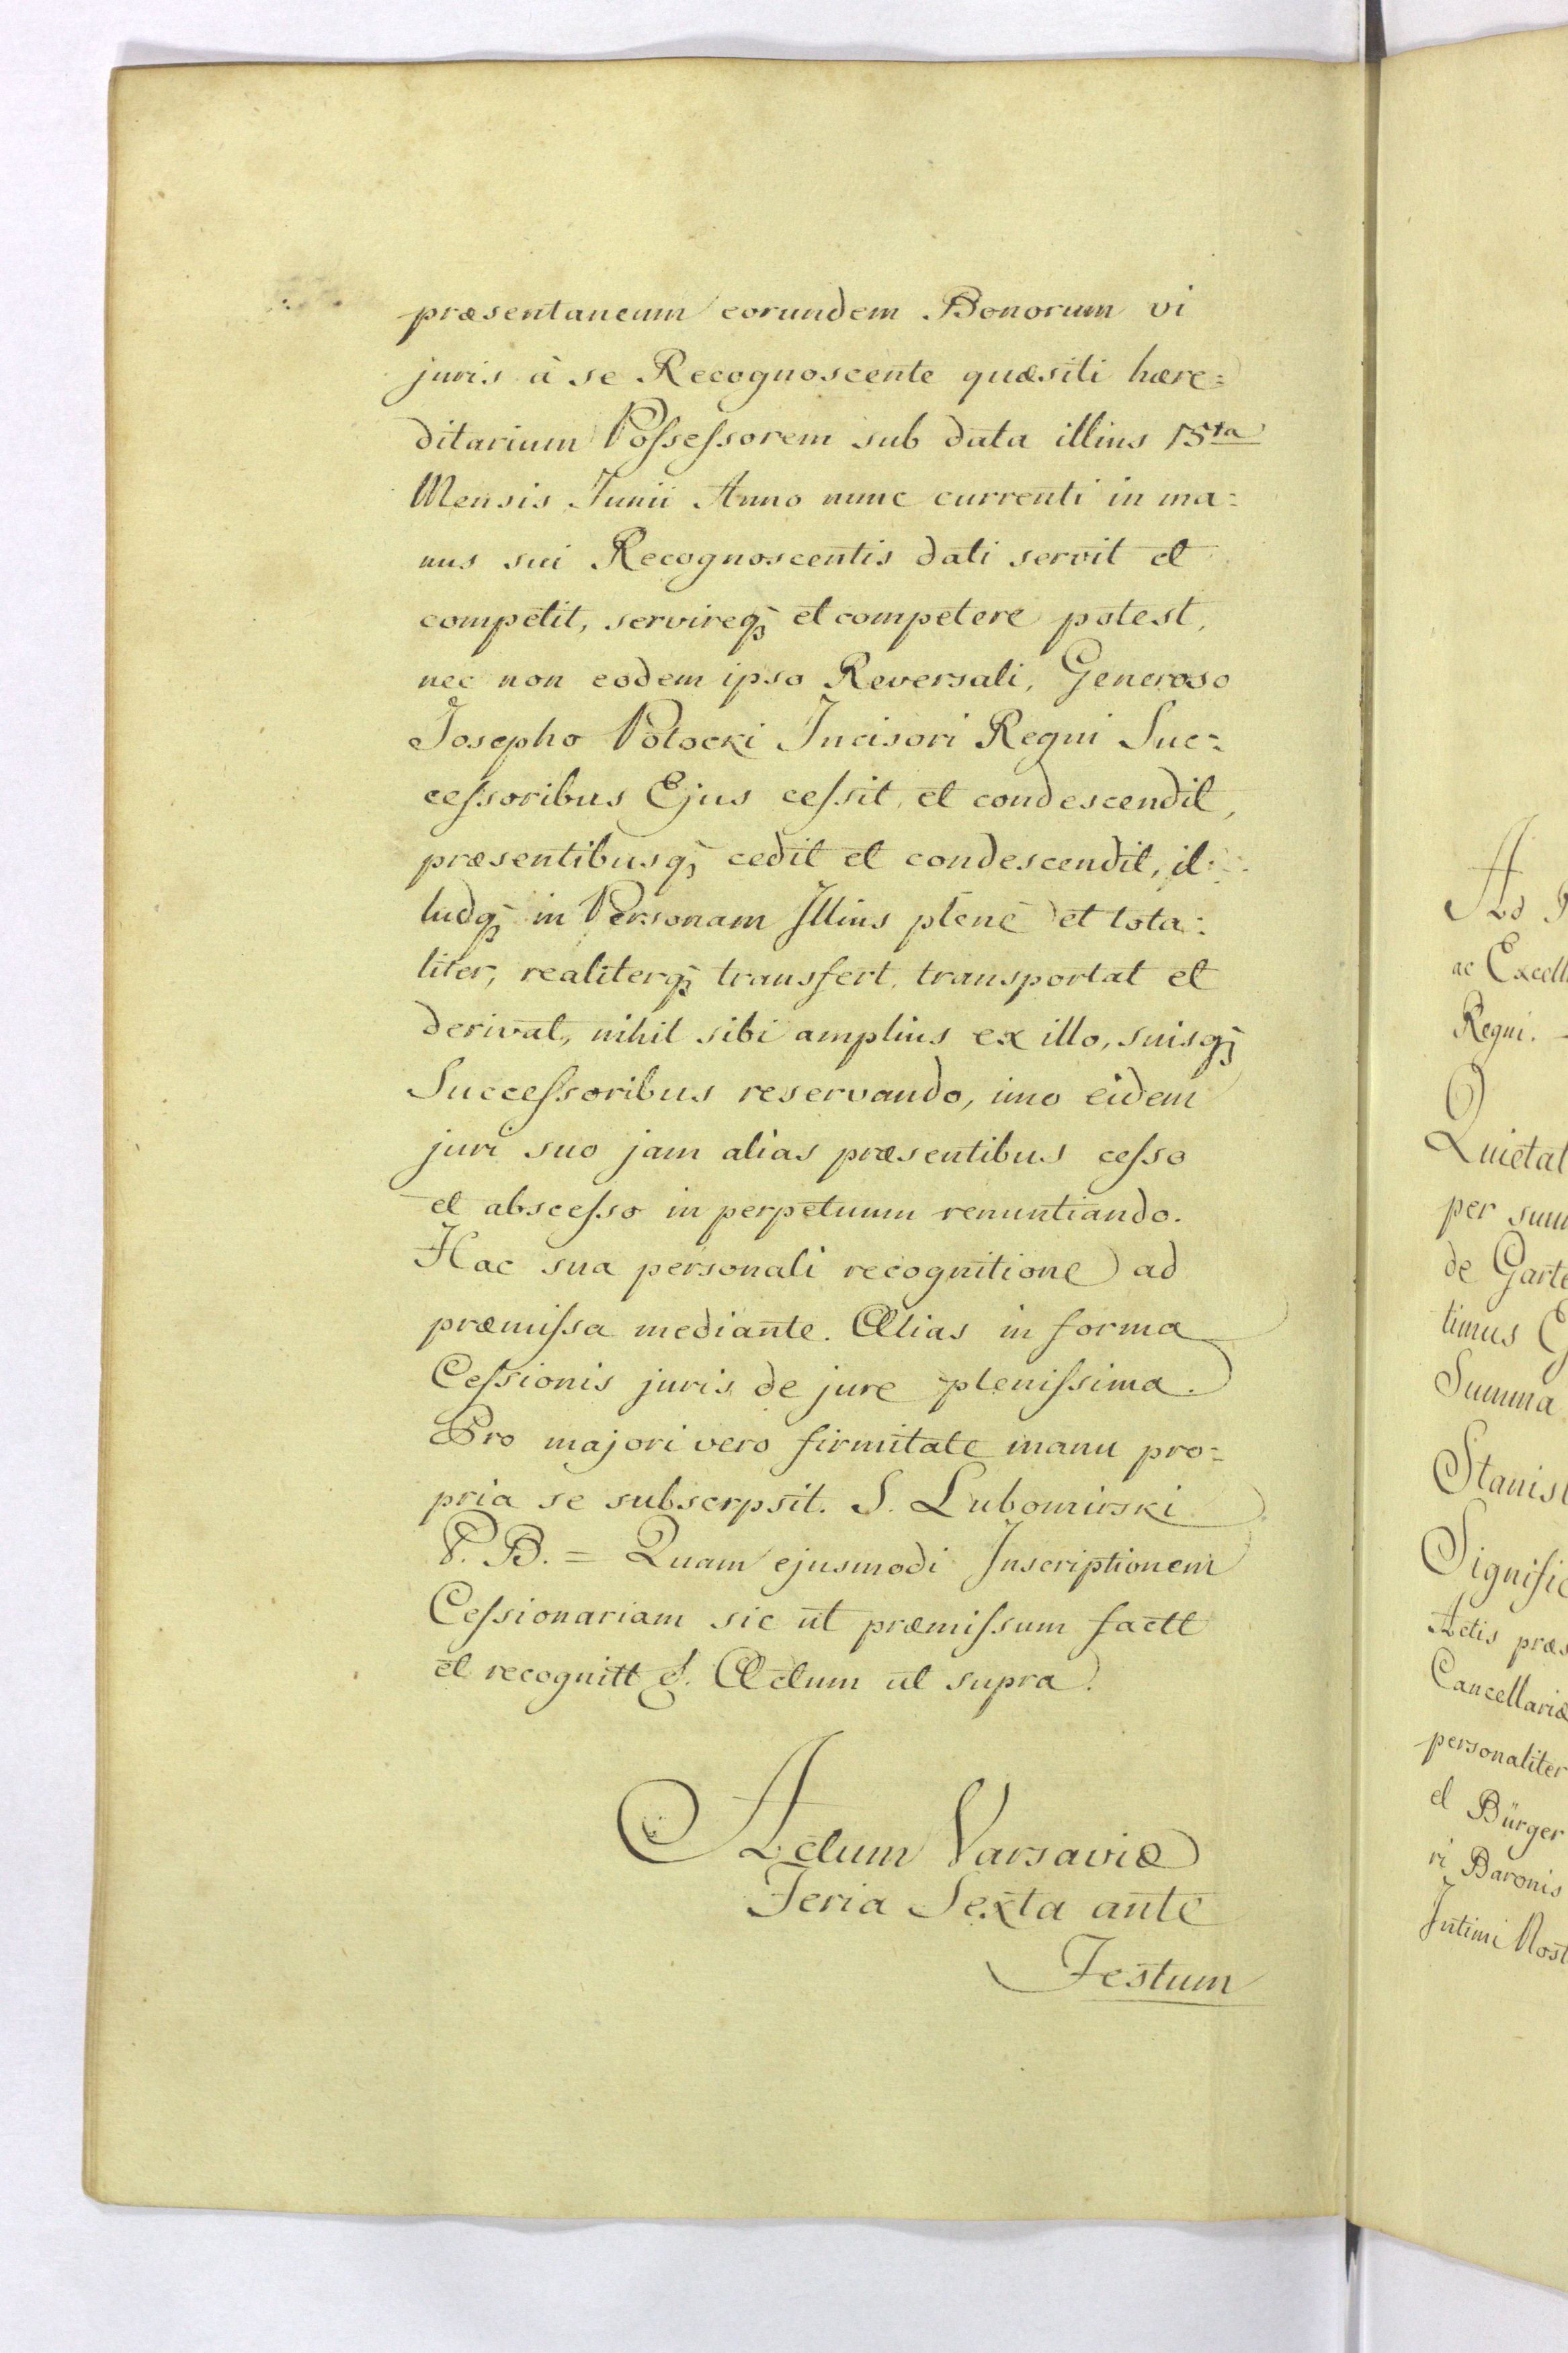 præsentaneum eorundem Bonorum vi
juris à se Recognoscente quæsiti hære=
ditarium Possessorem sub data illius 15ta
Mensis Junii Anno nunc currenti in ma=
nus sui Recognoscentis dati servit et
competit, servireq; et competere potest,
nec non eodem ipso Reversali, Generoso
Josepho Potocki Incisori Regni Suc=
cessoribus Ejus cessit, et condescendit,
præsentibusq; cedit et condescendit, il=
ludq; in Personam Illius plenè et tota=
liter, realiterq; transfert, transportat et
derivat, nihil sibi amplius ex illo, suisq;
Successoribus reservando, imo eidem
juri suo jam alias præsentibus cesso
et abscesso in perpetuum renuntiando.
Hac sua personali recognitione ad
præmissa mediante. Alias in forma
Cessionis juris de jure plenissima.
Pro majori vero firmitate manu pro=
pria se subscrpsit. S. Lubomirski
P. B. = Quam ejusmodi Inscriptionem
Cessionariam sic ut præmissum factt
et recognitt &. Actum ut supra.
Actum Varsaviæ
Feria Sexta ante
Festum
Ad
ac Excell
Regni.
Quietat
per sum
de Garte
timus
Summa
Stanisl
Signific
Actis præs
Cancellariæ
personaliter
et Bürger
ri Baronis
Intimi Nost